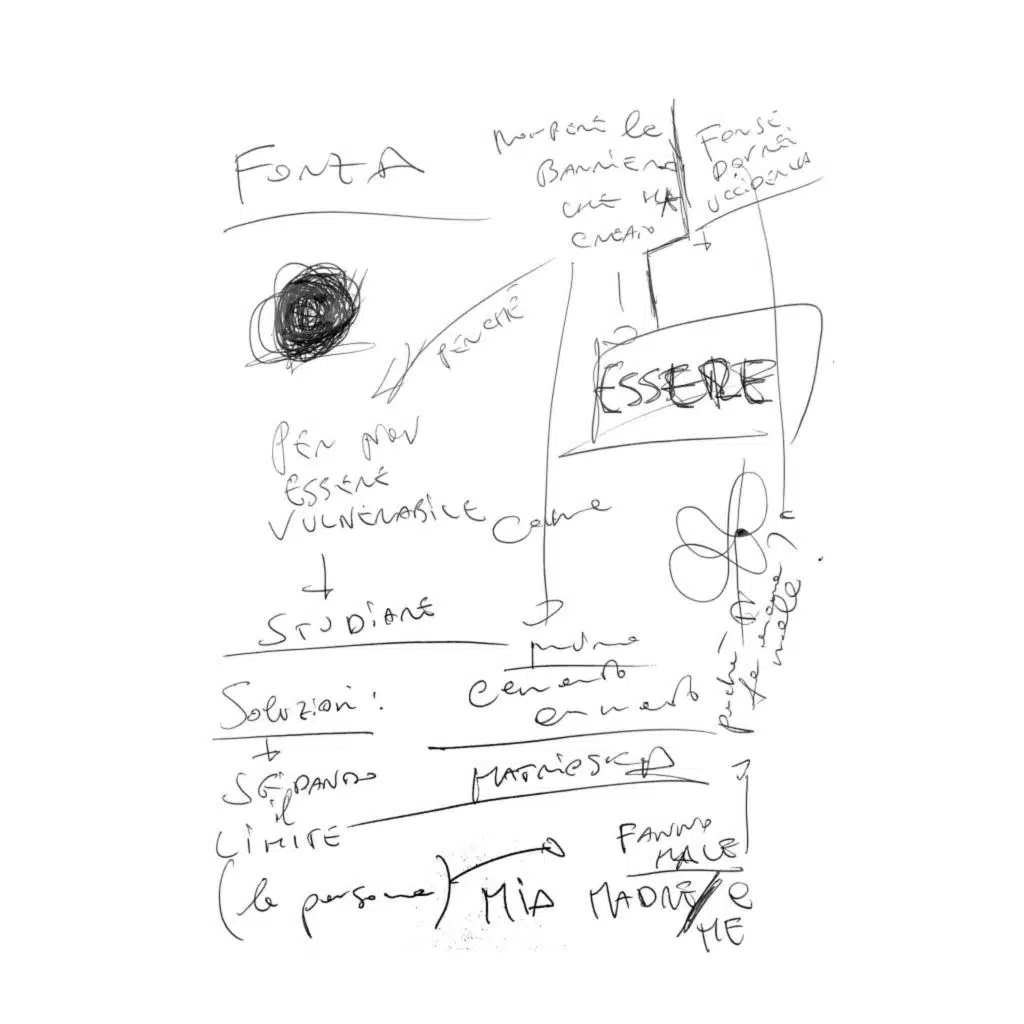 FORZA
ROMPERE le
BARRIERE
CHE HA
CREATO
FORSE
DOVREI
UCCIDERLA
PERCHÉ
ESSERE
PER NON
ESSERE
VULNERABILE
Come
STUDIARE
muro
cemento
armato
perché
fa ancora
male
Soluzioni:
SFIDANDO
il
LIMITE
MATRIOSKA
(le persone)
FANNO
MALE
MIA MADRE/e
ME